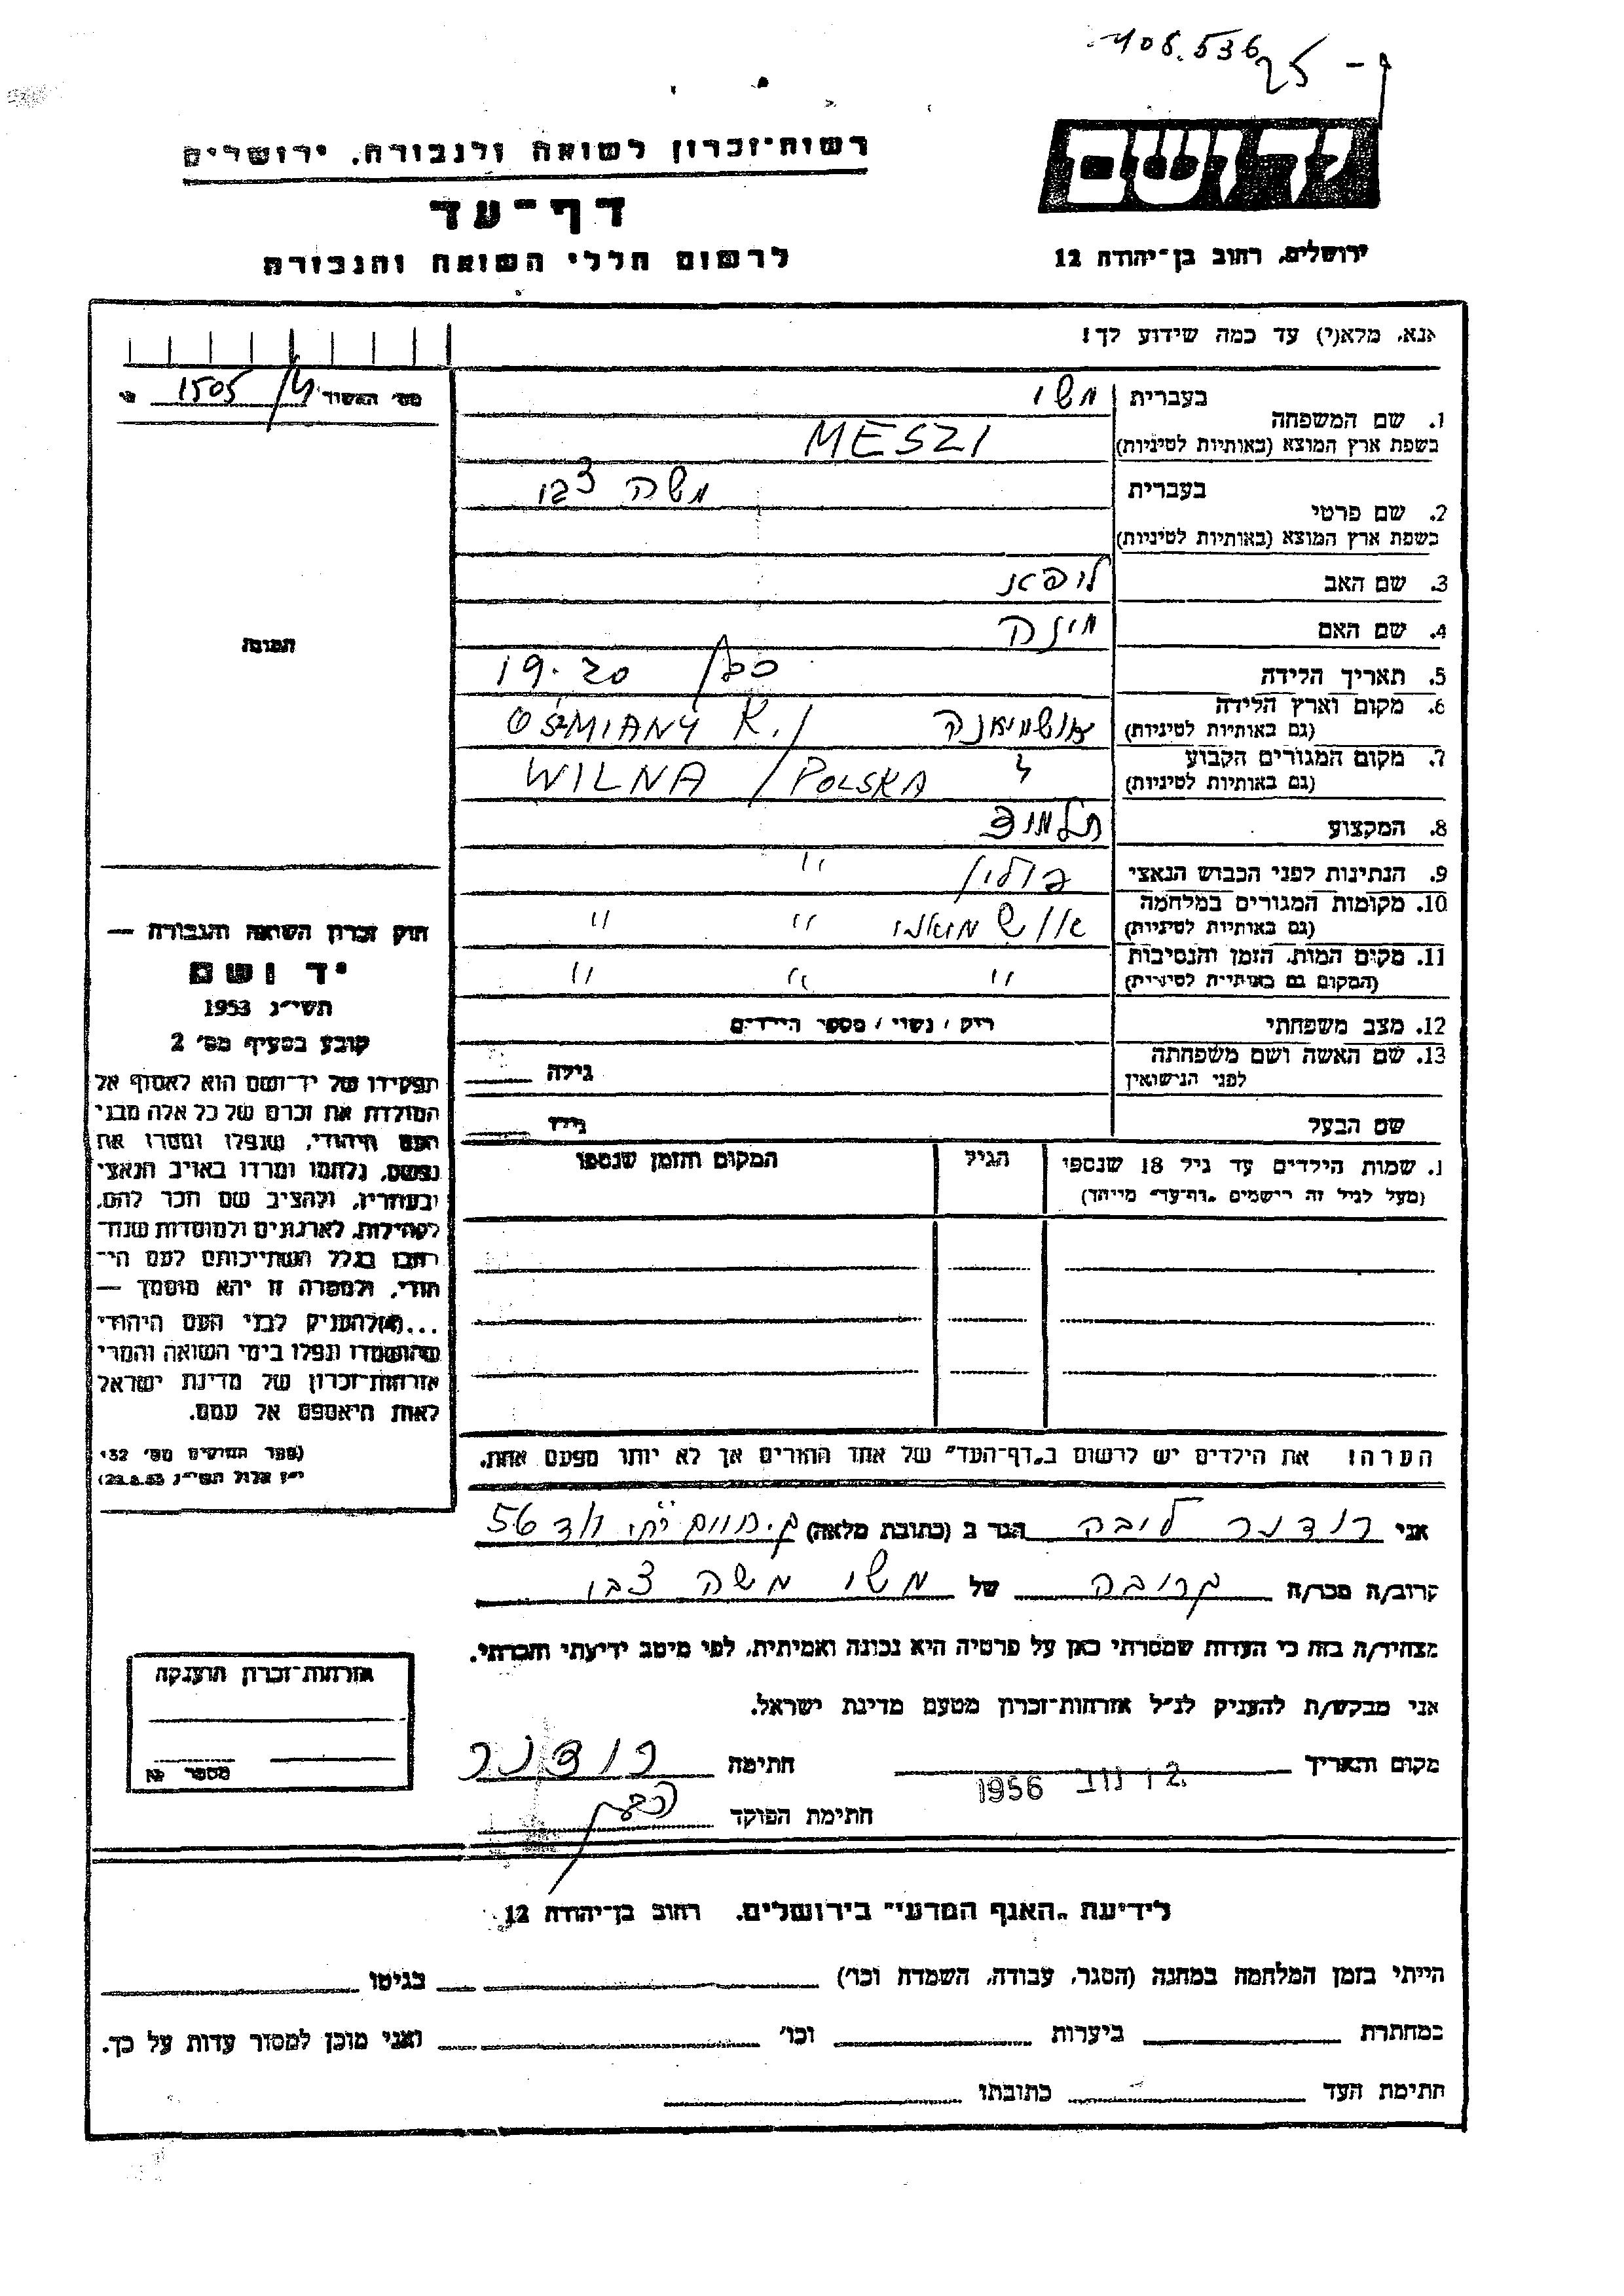 108.536
25 -
רשות־זכרון לשואה ולגבורה, ירושלים
דף־עד
לרשום חללי השואה והגבורה
יד ושם
ירושלים, רחוב בן־יהודה 12
אנא, מלא(י) עד כמה שידוע לך!
מס׳ האשור 1505
1. שם המשפחה
בעברית משי
בשפת ארץ המוצא (באותיות לטיניות) MESZI
2. שם פרטי
בעברית משה צבי
בשפת ארץ המוצא (באותיות לטיניות)
3. שם האב ליפא
4. שם האם מינה
5. תאריך הלידה 19.20
6. מקום וארץ הלידה אושמיאנה OSZMIANY K./
(גם באותיות לטיניות)
7. מקום המגורים הקבוע WILNA / POLSKA
(גם באותיות לטיניות)
8. המקצוע תלמוד
9. הנתינות לפני הכבוש הנאצי פולין "
10. מקומות המגורים במלחמה " "
(גם באותיות לטיניות)
11. מקום המות, הזמן והנסיבות " " "
(המקום גם באותיות לטיניות)
12. מצב משפחתי רוק / נשוי / מספר הילדים
13. שם האשה ושם משפחתה גילה
לפני הנישואין
שם הבעל גילו
התמונה
חוק זכרון השואה והגבורה —
יד ושם
תשי״ג 1953
קובע בסעיף מס׳ 2
תפקידו של יד־ושם הוא לאסוף אל
המולדת את זכרם של כל אלה מבני
העם היהודי, שנפלו ומסרו את
נפשם, נלחמו ומרדו באויב הנאצי
ובעוזריו, ולהציב שם וזכר להם,
לקהילות, לארגונים ולמוסדות שנח־
רבו בגלל השתייכותם לעם הי־
הודי, ולמטרה זו יהא מוסמך —
...(ו)להעניק לבני העם היהודי
שהושמדו ונפלו בימי השואה והמרי
אזרחות־זכרון של מדינת ישראל
לאות היאספם אל עמם.
(ספר החוקים מס׳ 132
י״ז אלול תשי״ג 28.8.53)
1. שמות הילדים עד גיל 18 שנספו הגיל המקום והזמן שנספו
(מעל לגיל זה רישמים „דף־עד״ מיוחד)
הערה! את הילדים יש לרשום ב„דף־העד״ של אחד ההורים אך לא יותר מפעם אחת.
אני רודנר ליבה הגר ב (כתובת מלאה) 56
קרוב/ה מכר/ה קרובה של משי משה צבי
מצהיר/ה בזה כי העדות שמסרתי כאן על פרטיה היא נכונה ואמיתית, לפי מיטב ידיעתי והכרתי.
אני מבקש/ת להעניק לנ״ל אזרחות־זכרון מטעם מדינת ישראל.
מקום ותאריך 12 נוב 1956 חתימה רודנר
חתימת הפוקד
אזרחות־זכרון הוענקה
מספר
לידיעת „האגף המדעי״ בירושלים. רחוב בן־יהודה 12
הייתי בזמן המלחמה במחנה (הסגר, עבודה, השמדה וכו׳) בגיטו
במחתרת ביערות וכו׳ ואני מוכן למסור עדות על כך.
חתימת העד כתובתו